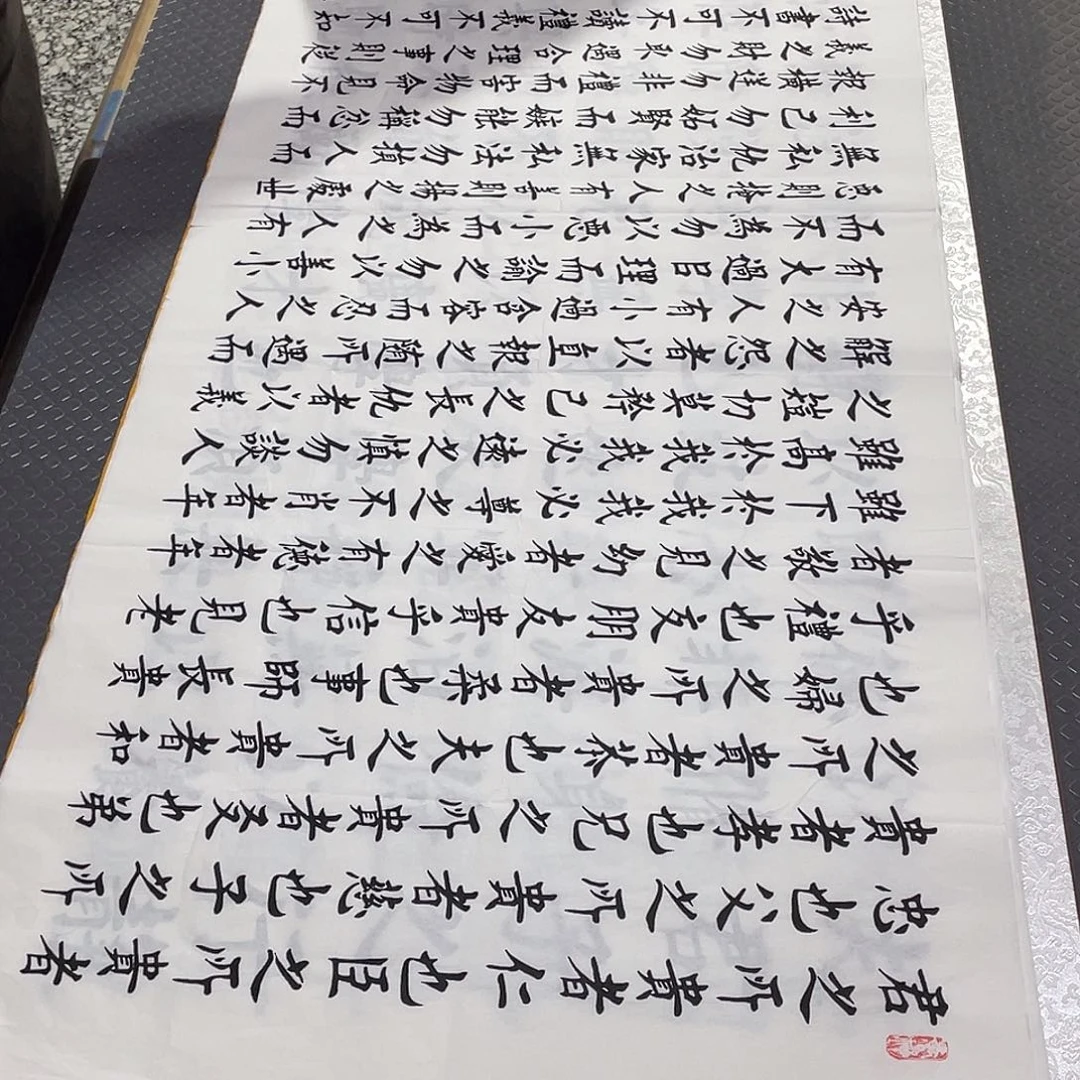 君之所貴者仁也臣之所貴者
忠也父之所貴者慈也子之所
貴者孝也兄之所貴者友也弟
之所貴者恭也夫之所貴者和
也婦之所貴者柔也事師長貴
乎禮也交朋友貴乎信也見老
者敬之見幼者愛之有德者年
雖下於我我必尊之不肖者年
雖高於我我必遠之慎勿談人
之短切莫矜己之長仇者以義
解之怨者以直報之隨所遇而
安之人有小過含容而忍之人
有大過㠯理而諭之勿以善小
而不為勿以惡小而為之人有
惡則掩之人有善則揚之處世
無私仇治家無私法勿損人而
利己勿妬賢而嫉能勿稱忿而
報橫逆勿非禮而害物命見不
義之財勿取遇合理之事則從
詩書不可不讀禮義不可不知